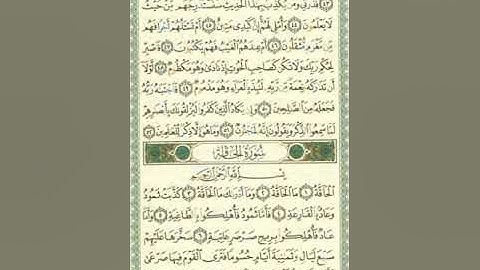 فَذَرْنِى وَمَن يُكَذِّبُ بِهَٰذَا ٱلْحَدِيثِ سَنَسْتَدْرِجُهُم مِّنْ حَيْثُ
لَا يَعْلَمُونَ ٤٤ وَأُمْلِى لَهُمْ إِنَّ كَيْدِى مَتِينٌ ٤٥ أَمْ تَسْـَٔلُهُمْ أَجْرًا فَهُم
مِّن مَّغْرَمٍ مُّثْقَلُونَ ٤٦ أَمْ عِندَهُمُ ٱلْغَيْبُ فَهُمْ يَكْتُبُونَ ٤٧ فَٱصْبِرْ
لِحُكْمِ رَبِّكَ وَلَا تَكُن كَصَاحِبِ ٱلْحُوتِ إِذْ نَادَىٰ وَهُوَ مَكْظُومٌ ٤٨ لَّوْلَآ
أَن تَدَٰرَكَهُۥ نِعْمَةٌ مِّن رَّبِّهِۦ لَنُبِذَ بِٱلْعَرَآءِ وَهُوَ مَذْمُومٌ ٤٩ فَٱجْتَبَٰهُ رَبُّهُۥ
فَجَعَلَهُۥ مِنَ ٱلصَّٰلِحِينَ ٥٠ وَإِن يَكَادُ ٱلَّذِينَ كَفَرُوا۟ لَيُزْلِقُونَكَ بِأَبْصَٰرِهِمْ
لَمَّا سَمِعُوا۟ ٱلذِّكْرَ وَيَقُولُونَ إِنَّهُۥ لَمَجْنُونٌ ٥١ وَمَا هُوَ إِلَّا ذِكْرٌ لِّلْعَٰلَمِينَ ٥٢
سُورَةُ الحَاقَّةِ
بِسْمِ ٱللَّهِ ٱلرَّحْمَٰنِ ٱلرَّحِيمِ
ٱلْحَآقَّةُ ١ مَا ٱلْحَآقَّةُ ٢ وَمَآ أَدْرَىٰكَ مَا ٱلْحَآقَّةُ ٣ كَذَّبَتْ ثَمُودُ
وَعَادٌۢ بِٱلْقَارِعَةِ ٤ فَأَمَّا ثَمُودُ فَأُهْلِكُوا۟ بِٱلطَّاغِيَةِ ٥ وَأَمَّا
عَادٌ فَأُهْلِكُوا۟ بِرِيحٍ صَرْصَرٍ عَاتِيَةٍ ٦ سَخَّرَهَا عَلَيْهِمْ
سَبْعَ لَيَالٍ وَثَمَٰنِيَةَ أَيَّامٍ حُسُومًا فَتَرَى ٱلْقَوْمَ فِيهَا صَرْعَىٰ